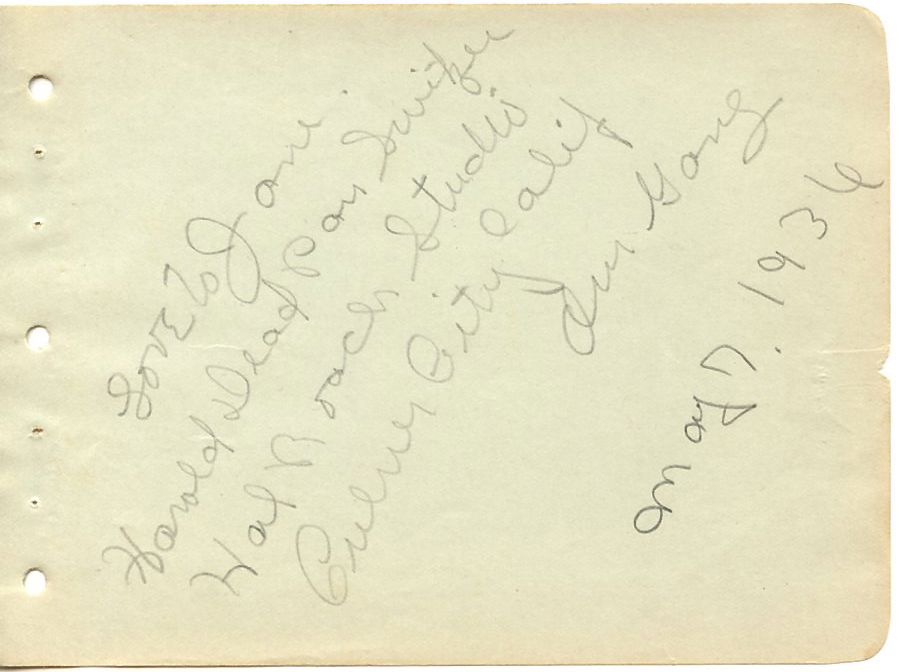 Love to Jane.
Harold Dead Pan Switzer
Hal Roach Studio
Culver City Calif
Our Gang
May 7. 1936